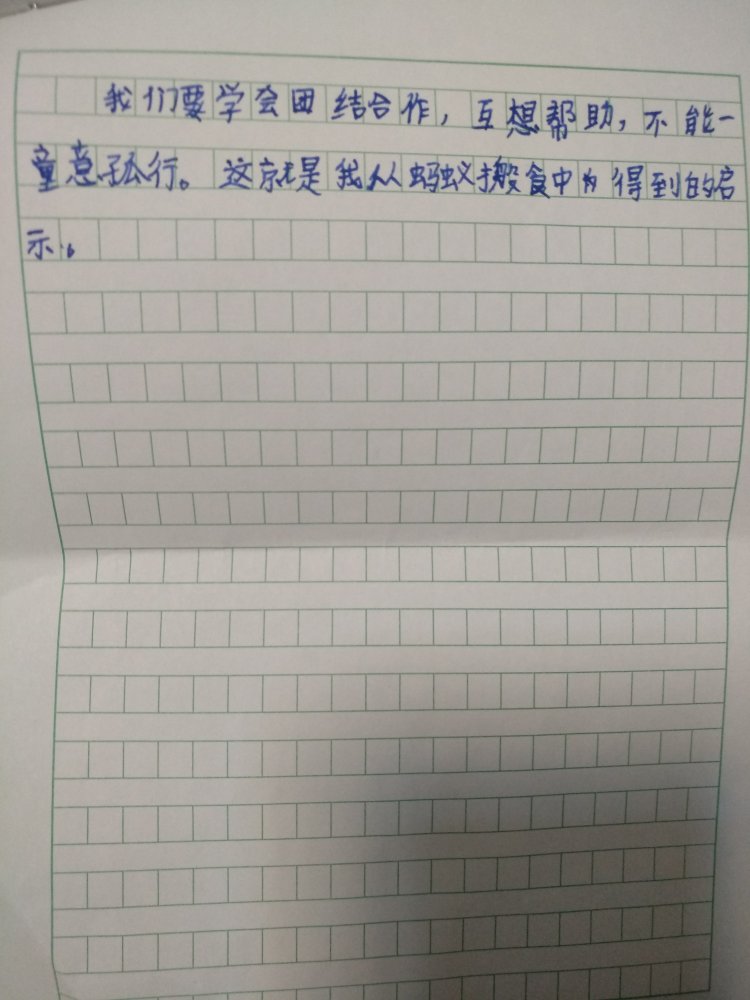 我们要学会团结合作，互想帮助，不能一
童意孤行。这就是我从蚂蚁搬食中为得到的启
示。